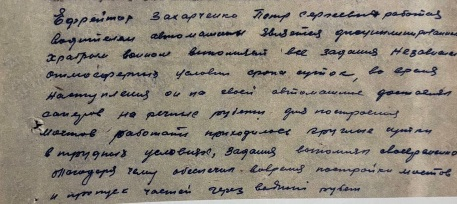 Ефрейтор Захарченко Петр Сергеевич работая
водителем автомашины является дисциплинированным
храбрым воином выполнял все задания независимо
атмосферных условий срока суток, во время
наступления он на своей автомашине доставлял
саперов на речные рубежи для построения
мостов работать приходилось круглые сутки
в трудных условиях, задания выполнял своевременно
благодаря чему обеспечил вовремя постройки мостов
и пропуск частей через водный рубеж